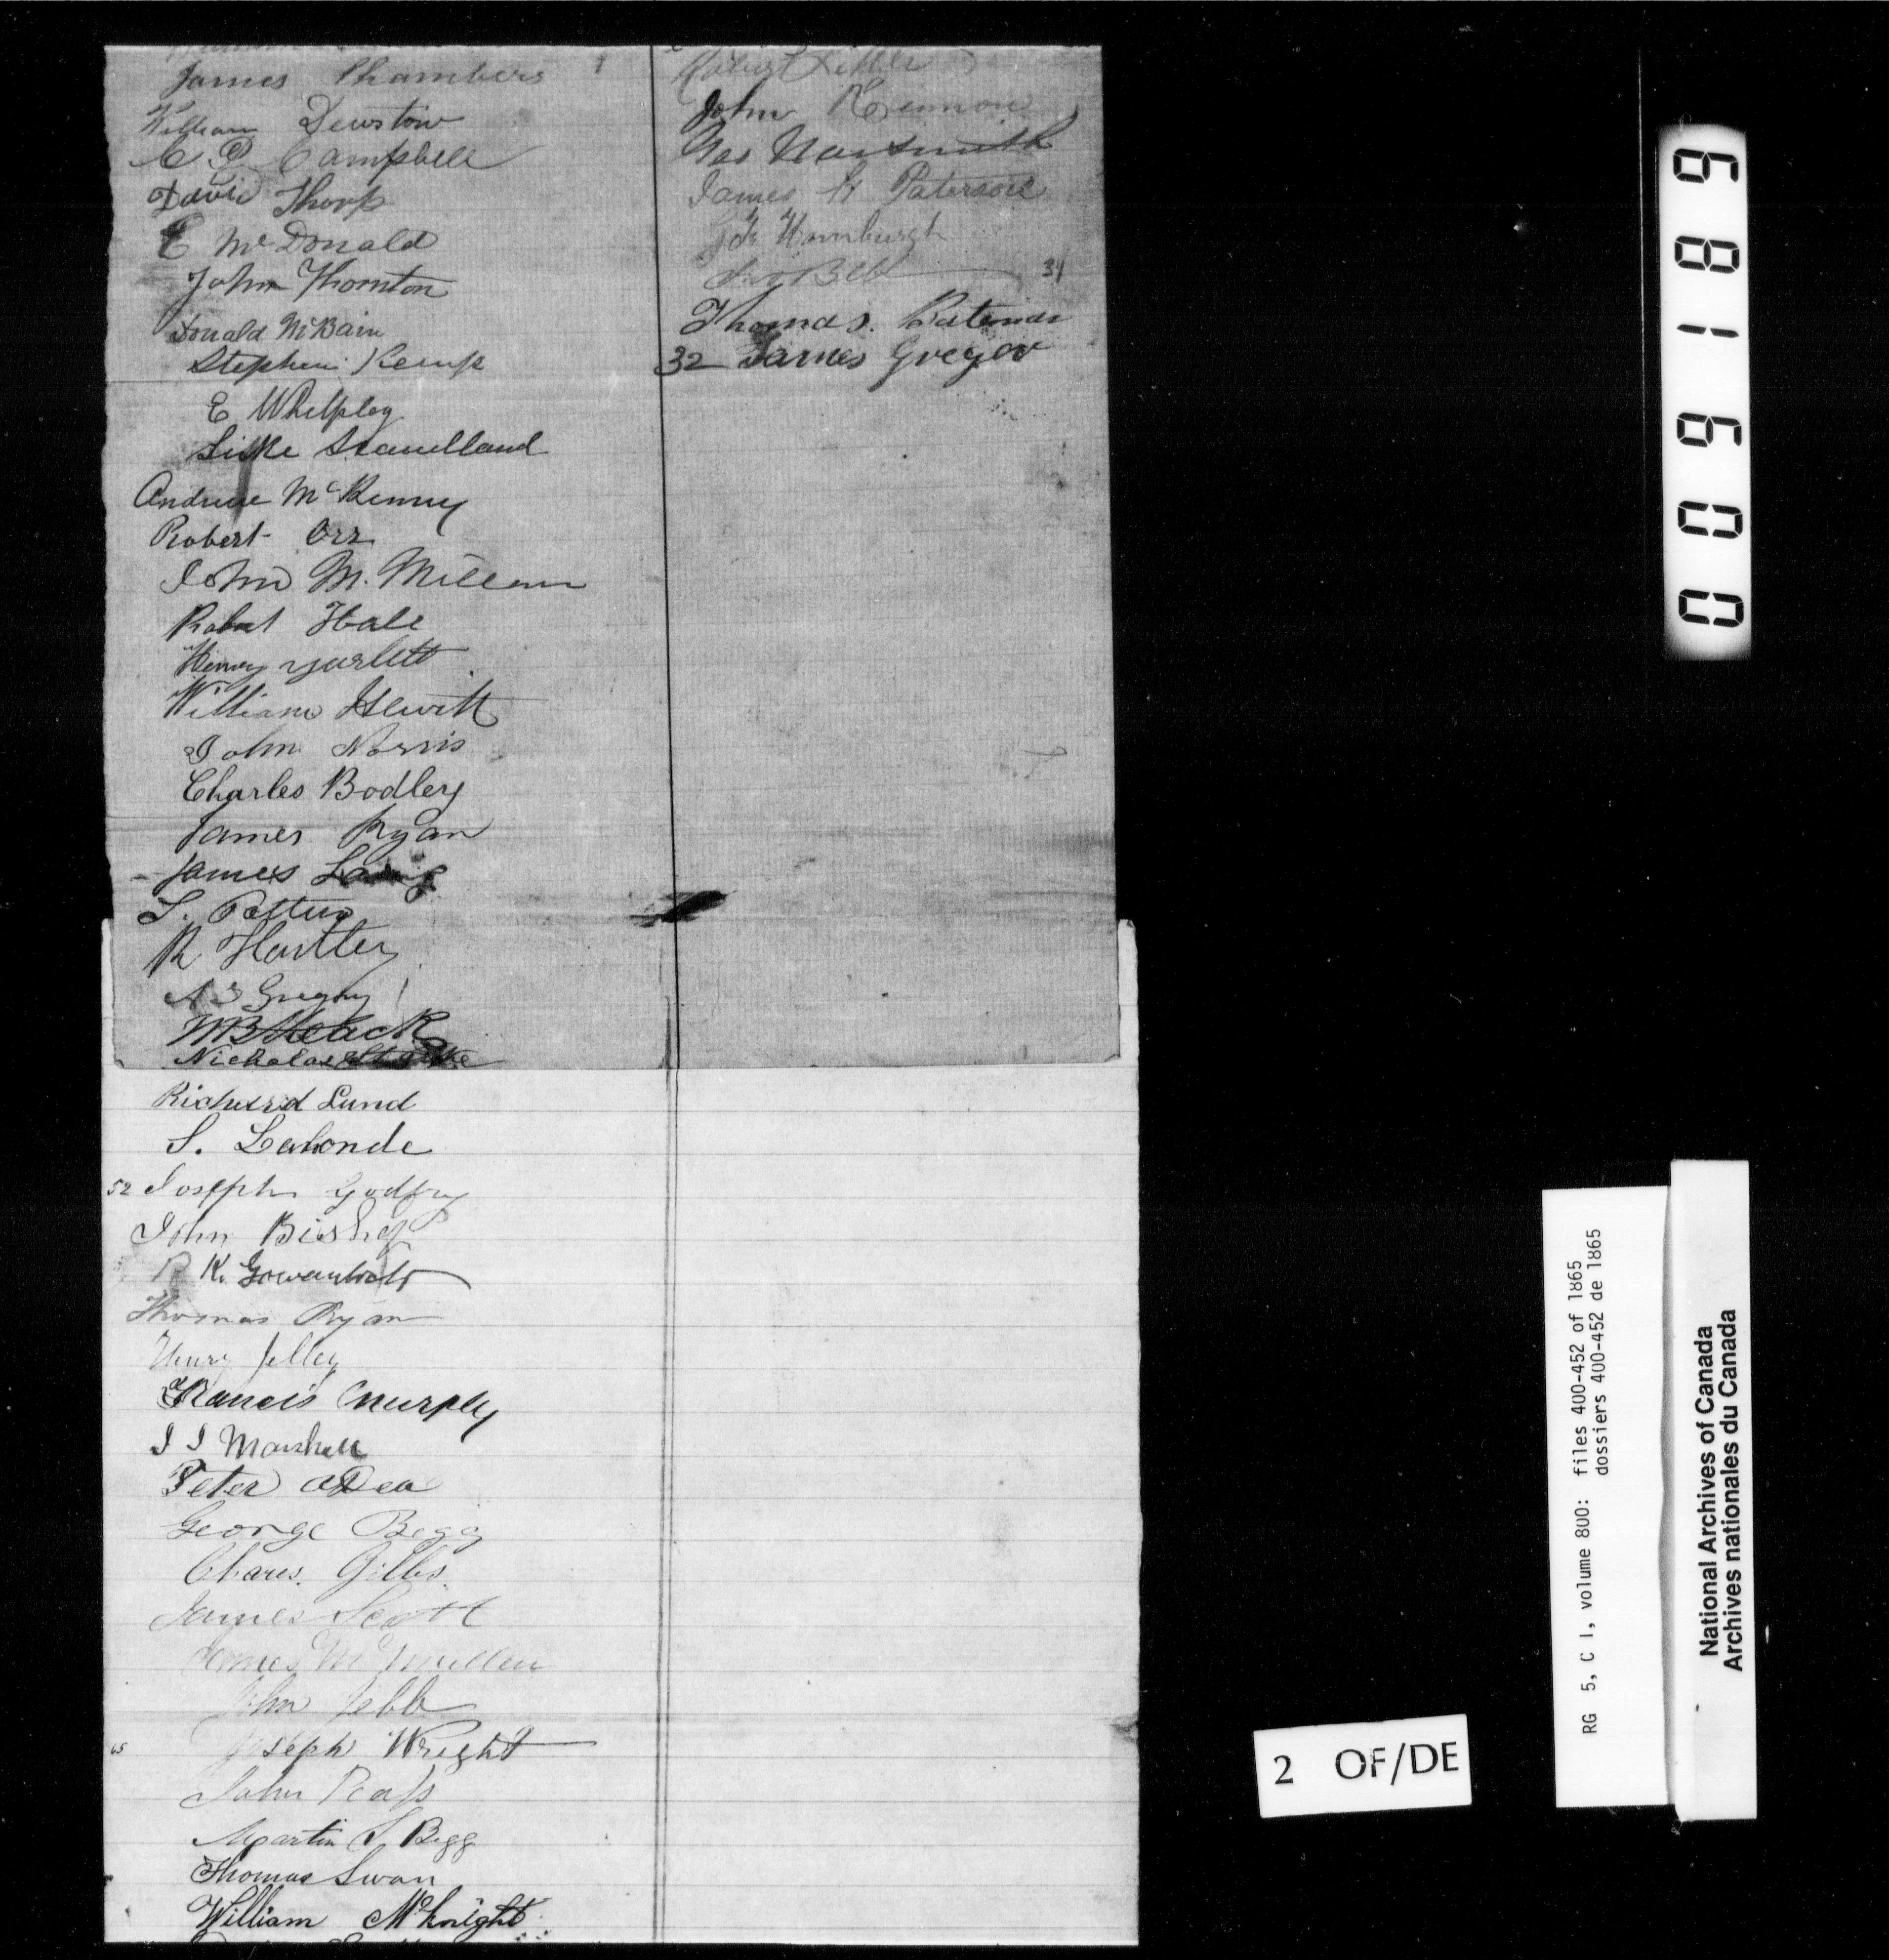 James Chambers
William Dewstow
C D Campbell
David Thorp
E McDonald
John Thornton
Donald McBain
Stephen Kemp
E Whelpley
Luke Stanelland
Andrew McKenney
Robert Orr
John M. Millan
Robert Hale
Henry Yarlett
William Hewitt
John Norris
Charles Bodley
James Ryan
James Laing
R Hartley
A S Gregory
W B Black
Nicholas
Richard Lund
S. Lalonde
52 Joseph Godfry
John Bishop
R K.
Thomas Ryan
Henry Jelley
Francis Murphy
J J Marshall
Peter ODea
George Begg
Chares. Gibbs.
James Scott
James McMullen
John Jebb
65 Joseph Wright
John Peaſs
Martin S Begg
Thomas Swan
William McKnight
Robert
John
Geo
James H Paterson
31
Thomas. Bateman
32 James Gregor
0 0 6 1 8 6
RG 5, C 1, volume 800: files 400-452 of 1865
dossiers 400-452 de 1865
National Archives of Canada
Archives nationales du Canada
2 OF/DE